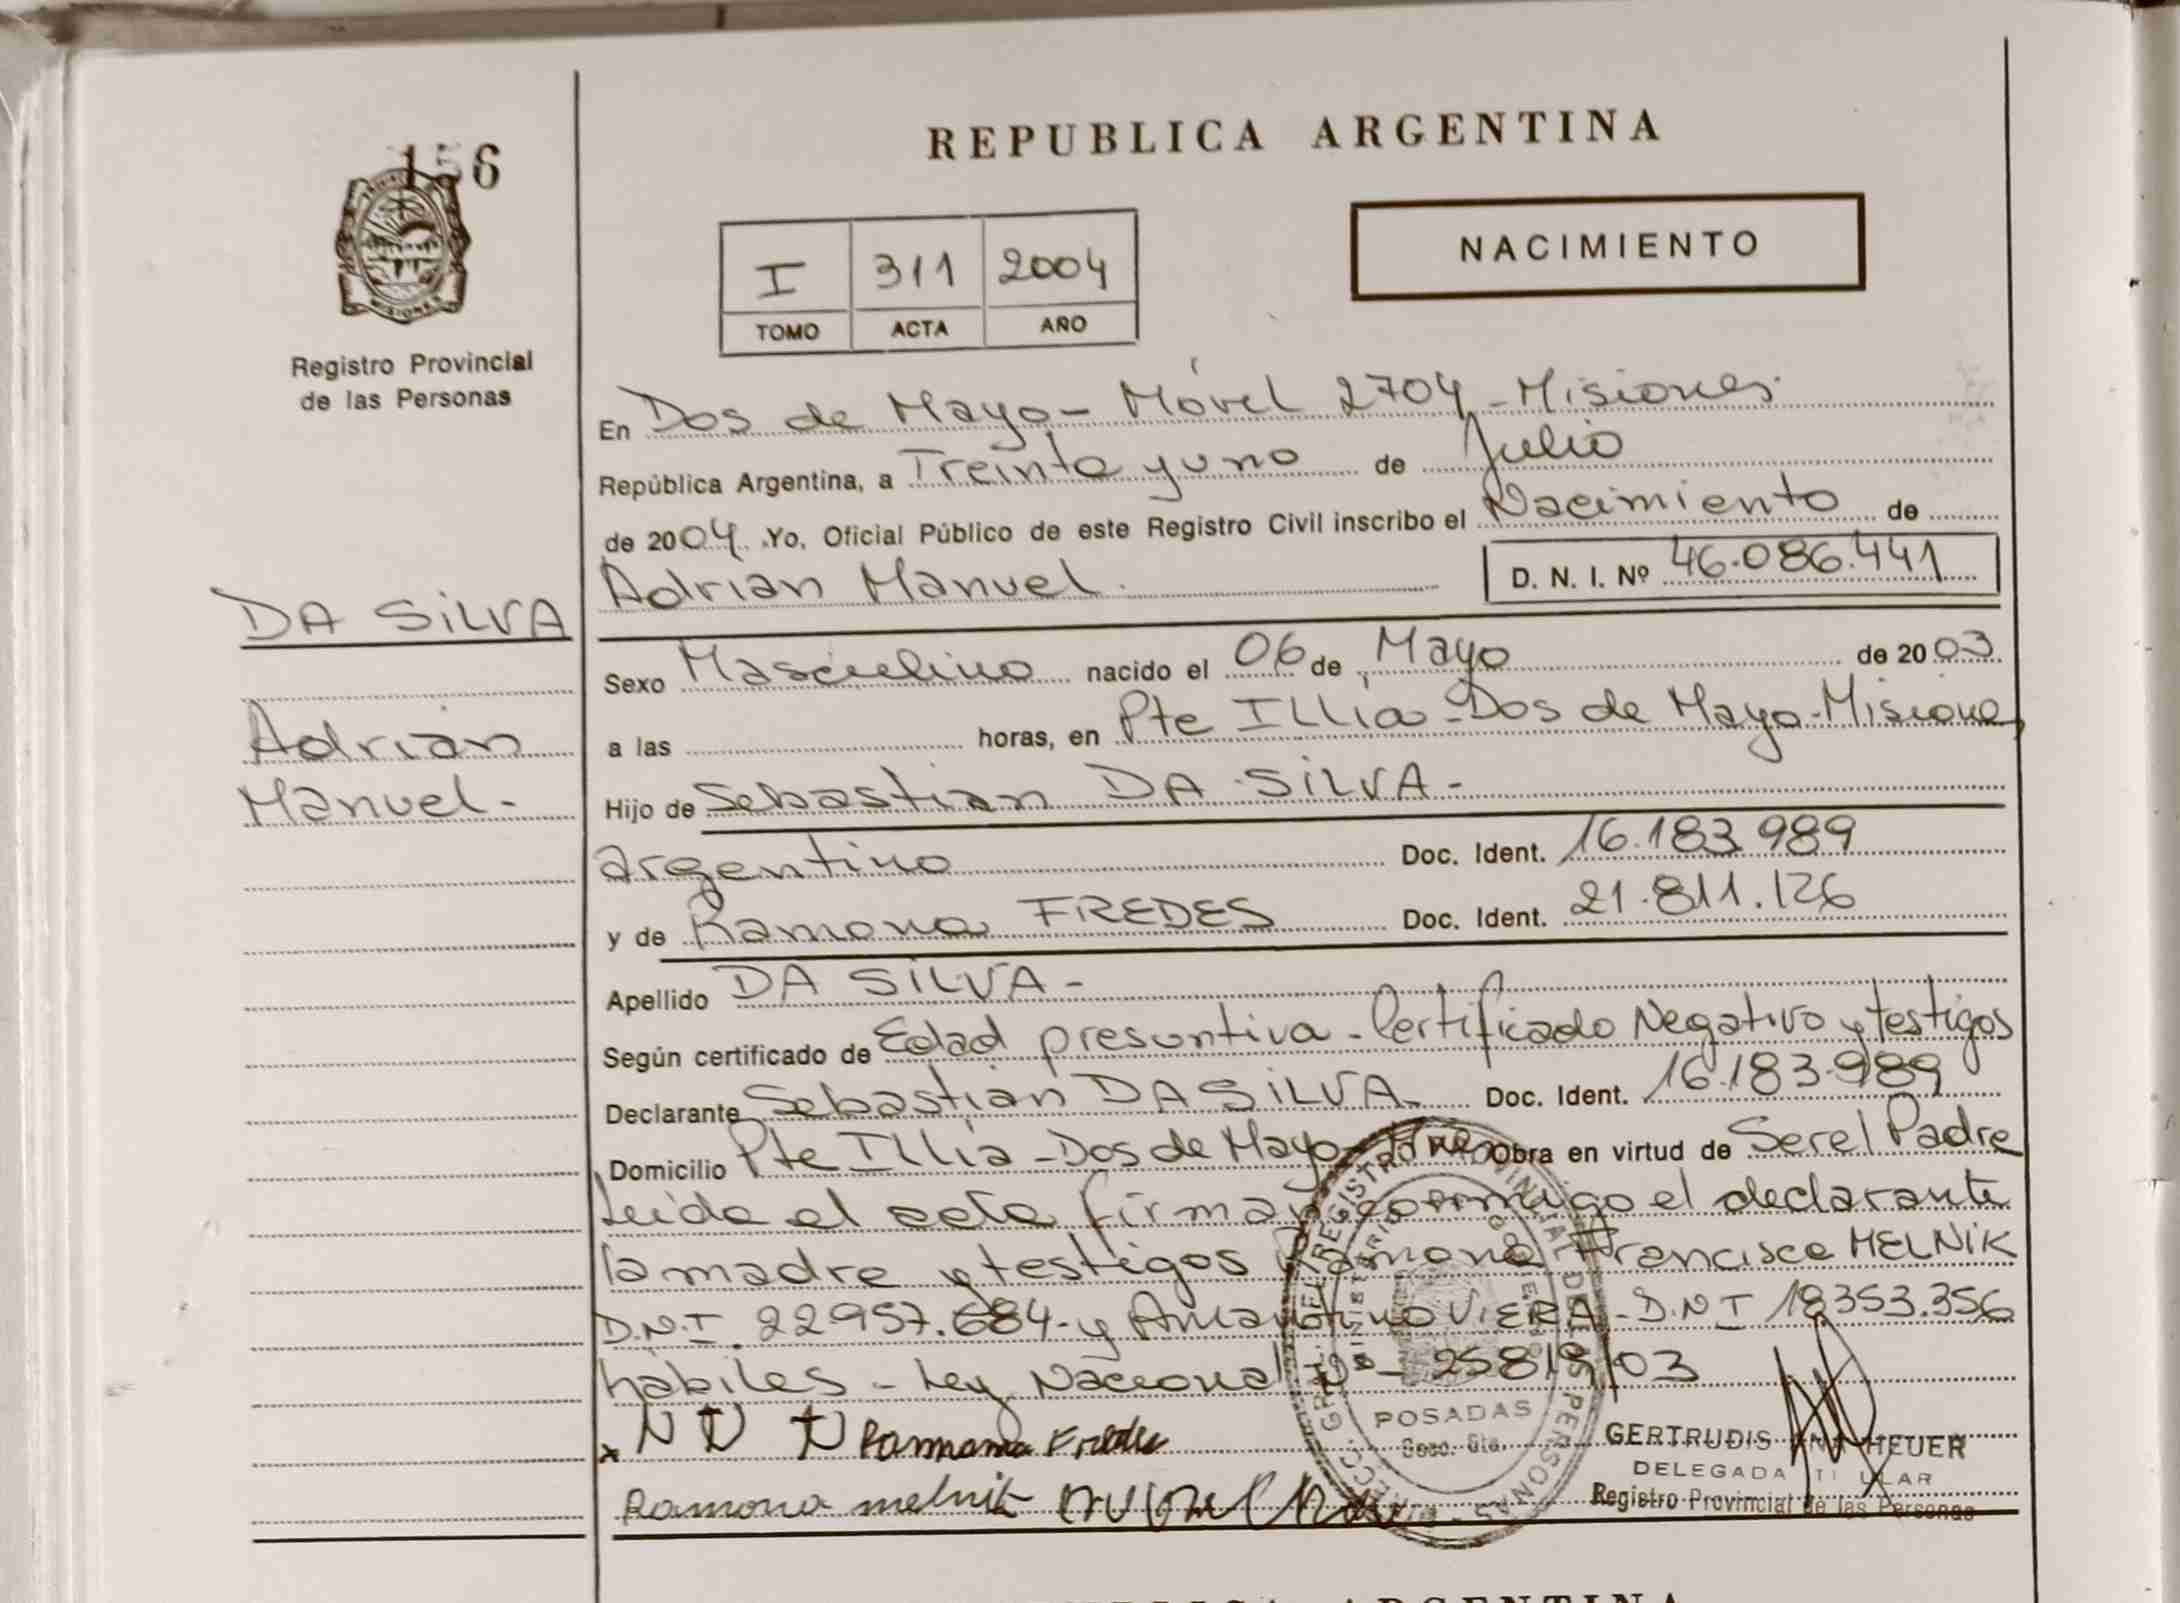 156
REPUBLICA ARGENTINA
NACIMIENTO
I 311 2004
TOMO ACTA AÑO
Registro Provincial
de las Personas
En Dos de Mayo - Móvil 2704 - Misiones
República Argentina, a Treinta y uno de Julio
de 2004. Yo, Oficial Público de este Registro Civil inscribo el Nacimiento de
Adrian Manuel. D. N. I. Nº 46.086.441
DA SILVA
Adrian
Manuel.-
Sexo Masculino nacido el 06 de Mayo de 2003
a las horas, en Pte ILLia - Dos de Mayo - Misiones
Hijo de Sebastian DA SILVA -
argentino Doc. Ident. 16.183.989
y de Ramona FREDES Doc. Ident. 21.811.126
Apellido DA SILVA -
Según certificado de Edad presuntiva - Certificado Negativo y testigos
Declarante Sebastian DA SILVA Doc. Ident. 16.183.989
Domicilio Pte ILLia - Dos de Mayo - Obra en virtud de Ser el Padre
Leida el acta firman conmigo el declarante
la madre y testigos Ramona Francisca MELNIK
D.N.I. 22957.684 - y VIERA - D.N.I 18.353.356
hábiles - Ley Nacional Nº - 25819/03
Ramona melnik
POSADAS
GERTRUDIS HEUER
DELEGADA TITULAR
Registro Provincial de las Personas